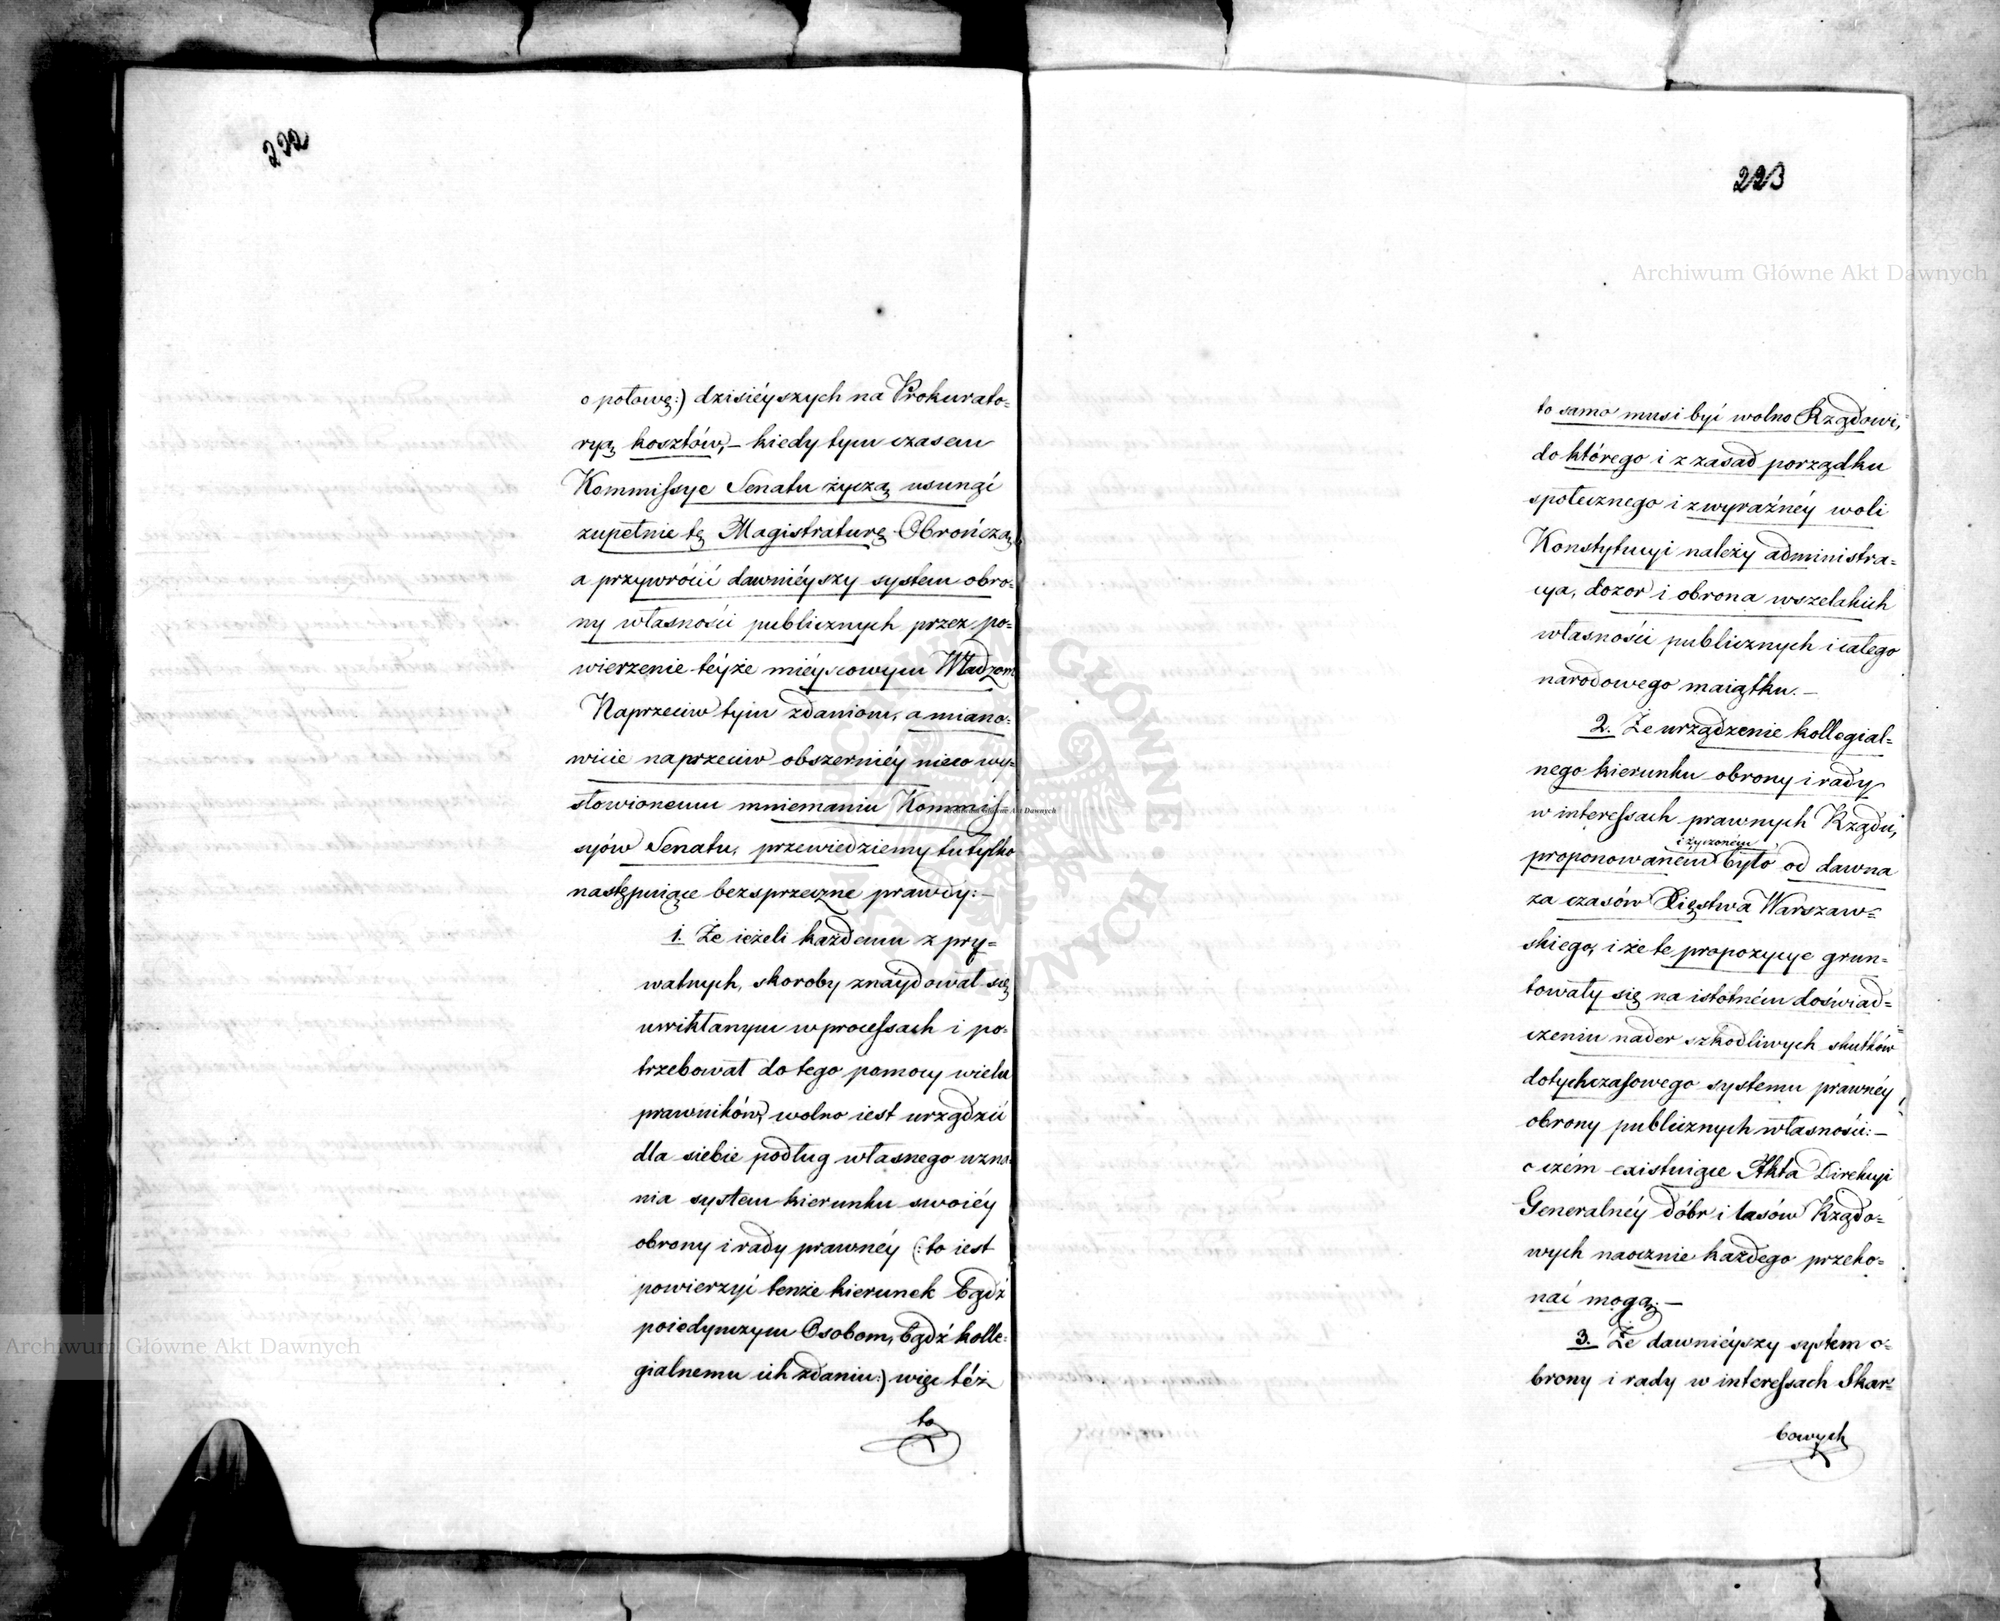 222
o połowę:) dzisiéyszych na Prokurato=
ryą kosztów,– kiedy tym czasem
Kommissye Senatu życzą usunąć
zupełnie tę Magistraturę Obrończą
a przywrócić dawniéyszy system obro=
ny własności publicznych przez po=
wierzenie téyże miéyscowym Władzom
Naprzeciw tym zdaniom, a miano=
wicie naprzeciw obszerniéy nieco wy=
słowionemu mniemaniu Kommis=
syów Senatu, przewiedziemy tu tylko
następuiące bezsprzeczne prawdy:–
1. Że ieżeli każdemu z pry=
watnych, skoroby znaydował się
uwikłanym w processach i po=
trzebował do tego pomocy wielu
prawników, wolno iest urządzić
dla siebie podług własnego uzna=
nia system kierunku swoiéy
obrony i rady prawnéy (:to iest
powierzyć tenże kierunek bądź
poiedynczym Osobom, bądź kolle=
gialnemu ich zdaniu:) więc też
to
223
to samo musi być wolno Rządowi,
do którego i z zasad porządku
społecznego i z wyraźnéy woli
Konstytucyi należy administra=
cya, dozor i obrona wszelakich
własności publicznych i całego
narodowego maiątku.–
2. Że urządzenie kollegial=
nego kierunku obrony i rady
w interessach prawnych Rządu,
i życzoném
proponowaném było od dawna
za czasów Xięstwa Warszaw=
skiego, i że te propozycye grun=
towały się na istotném doświad=
czeniu nader szkodliwych skutków
dotychczasowego systemu prawnéy
obrony publicznych własności:–
o czém existuiące Akta Direkcyi
Generalnéy dóbr i lasów Rządo=
wych naocznie każdego przeko=
nać mogą.–
3. Że dawniéyszy system o=
brony i rady w interessach Skar=
bowych
Archiwum Główne Akt Dawnych
Archiwum Główne Akt Dawnych
Archiwum Główne Akt Dawnych